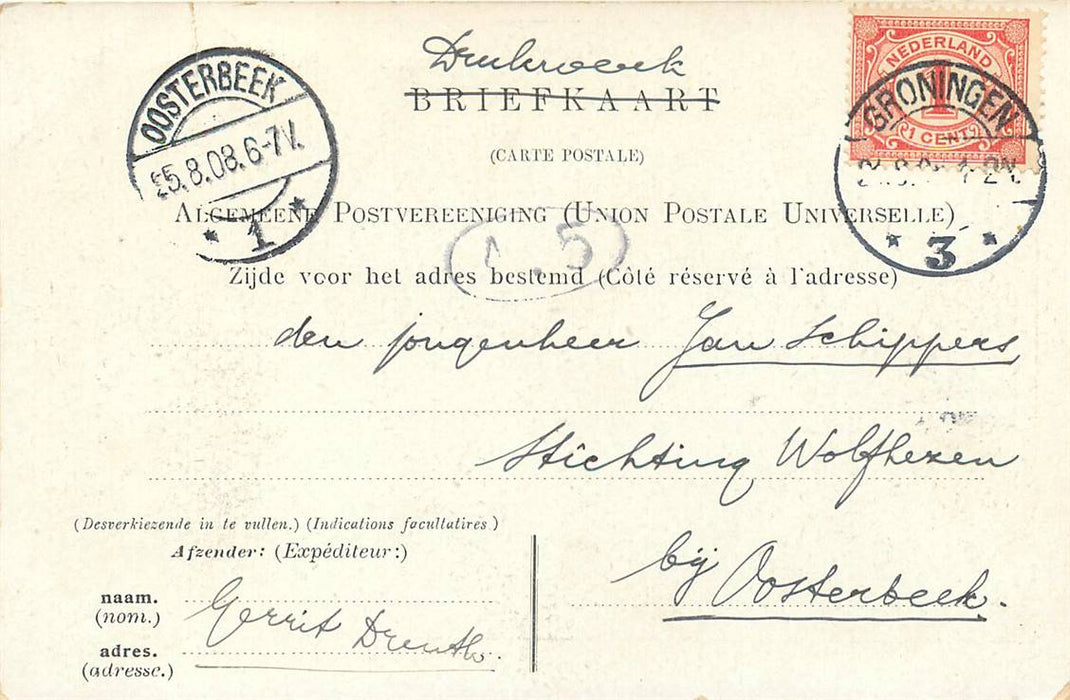 Drukwerk
BRIEFKAART
(CARTE POSTALE)
NEDERLAND
1
1 CENT
GRONINGEN
3
OOSTERBEEK
25.8.08.6-7V.
1
ALGEMEENE POSTVEREENIGING (UNION POSTALE UNIVERSELLE)
Zijde voor het adres bestemd (Côté réservé à l'adresse)
den jongenheer Jan Schippers
Stichting Wolfhezen
bij Oosterbeek.
(Desverkiezende in te vullen.) (Indications facultatires)
Afzender: (Expéditeur:)
naam. Gerrit Drenth.
(nom.)
adres.
(adresse.)